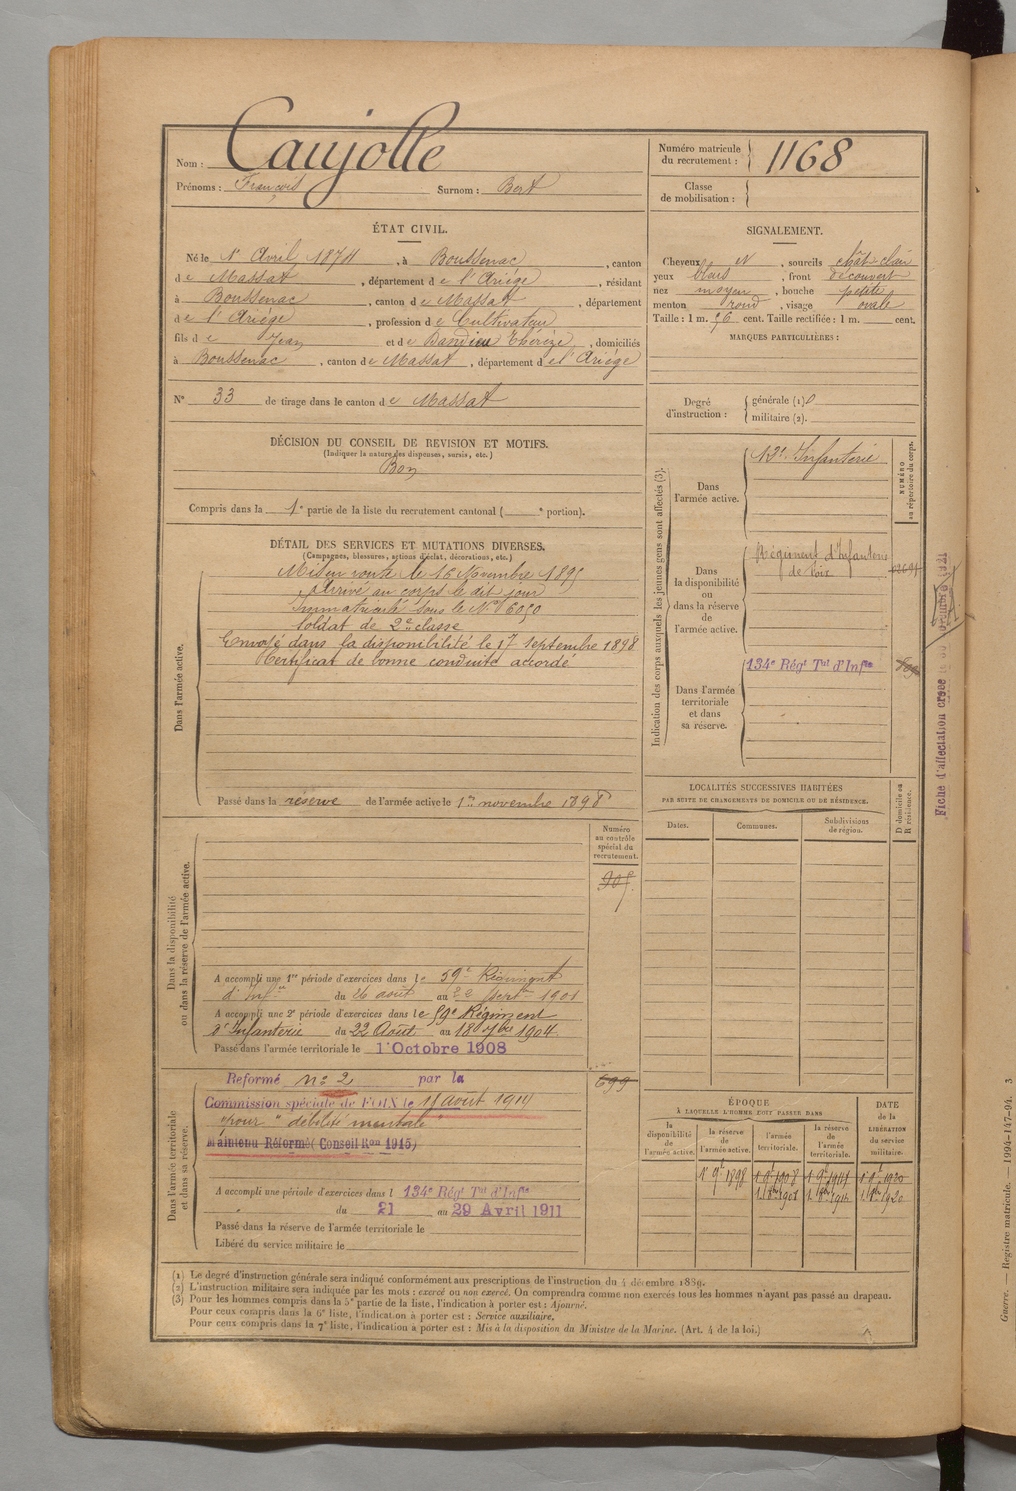 Nom : Caujolle
Prénoms : François Surnom : Bert
Numéro matricule du recrutement : 1168
Classe de mobilisation :
ÉTAT CIVIL.
Né le 1er Avril 1874, à Boussenac, canton
de Massat, département de l'Ariége, résidant
à Boussenac, canton de Massat, département
de l'Ariége, profession de Cultivateur
fils de Jean et de Thérèze, domiciliés
à Boussenac, canton de Massat, département de l'Ariége
N° 33 de tirage dans le canton de Massat
SIGNALEMENT.
Cheveux N, sourcils chât clair
yeux bleus, front découvert
nez moyen, bouche petite
menton rond, visage ovale
Taille : 1 m. 56 cent. Taille rectifiée : 1 m. cent.
MARQUES PARTICULIÈRES :
Degré d'instruction : générale (1) 0
militaire (2).
DÉCISION DU CONSEIL DE REVISION ET MOTIFS.
(Indiquer la nature des dispenses, sursis, etc.)
Bon
Compris dans la 1e partie de la liste du recrutement cantonal ( e portion).
DÉTAIL DES SERVICES ET MUTATIONS DIVERSES.
(Campagnes, blessures, actions d'éclat, décorations, etc.)
Dans l'armée active.
Mis en route le 16 Novembre 1895
Arrivé au corps le dit jour
Immatriculé sous le N° 6050
Soldat de 2e classe
Envoyé dans la disponibilité le 17 septembre 1898
Certificat de bonne conduite accordé
Passé dans la réserve de l'armée active le 1er novembre 1898
Indication des corps auxquels les jeunes gens sont affectés (3).
NUMÉRO au répertoire du corps.
Dans l'armée active.
Infanterie
Dans la disponibilité ou dans la réserve de l'armée active.
Régiment d'Infanterie
de Foix
Dans l'armée territoriale et dans sa réserve.
134e Régt Tal d'Infie
Fiche d'affectation créée
LOCALITÉS SUCCESSIVES HABITÉES
PAR SUITE DE CHANGEMENTS DE DOMICILE OU DE RÉSIDENCE.
Dates. Communes. Subdivisions de région. D domicile ou R résidence.
Dans la disponibilité ou dans la réserve de l'armée active.
Numéro au contrôle spécial du recrutement.
A accompli une 1re période d'exercices dans le 59e Régiment
d'Infie du 26 août au 22 Septe 1901
A accompli une 2e période d'exercices dans le 59e Régiment
d'Infanterie du 22 Août au 18 7bre 1904
Passé dans l'armée territoriale le 1 Octobre 1908
699
Dans l'armée territoriale et dans sa réserve.
Reformé n° 2 par la
Commission spéciale de FOIX le août 1914
pour "débilité mentale"
Maintenu Réformé (Conseil Ron 1915)
A accompli une période d'exercices dans l 134e Régt Tal d'Infie
du 21 au 29 Avril 1911
Passé dans la réserve de l'armée territoriale le
Libéré du service militaire le
ÉPOQUE
À LAQUELLE L'HOMME DOIT PASSER DANS
la disponibilité de l'armée active. la réserve de l'armée active. l'armée territoriale. la réserve de l'armée territoriale.
DATE de la LIBÉRATION du service militaire.
(1) Le degré d'instruction générale sera indiqué conformément aux prescriptions de l'instruction du 4 décembre 1889.
(2) L'instruction militaire sera indiquée par les mots : exercé ou non exercé. On comprendra comme non exercés tous les hommes n'ayant pas passé au drapeau.
(3) Pour les hommes compris dans la 5e partie de la liste, l'indication à porter est : Ajourné.
Pour ceux compris dans la 6e liste, l'indication à porter est : Service auxiliaire.
Pour ceux compris dans la 7e liste, l'indication à porter est : Mis à la disposition du Ministre de la Marine. (Art. 4 de la loi.)
Guerre. — Registre matricule. — 1994-147-94. 3